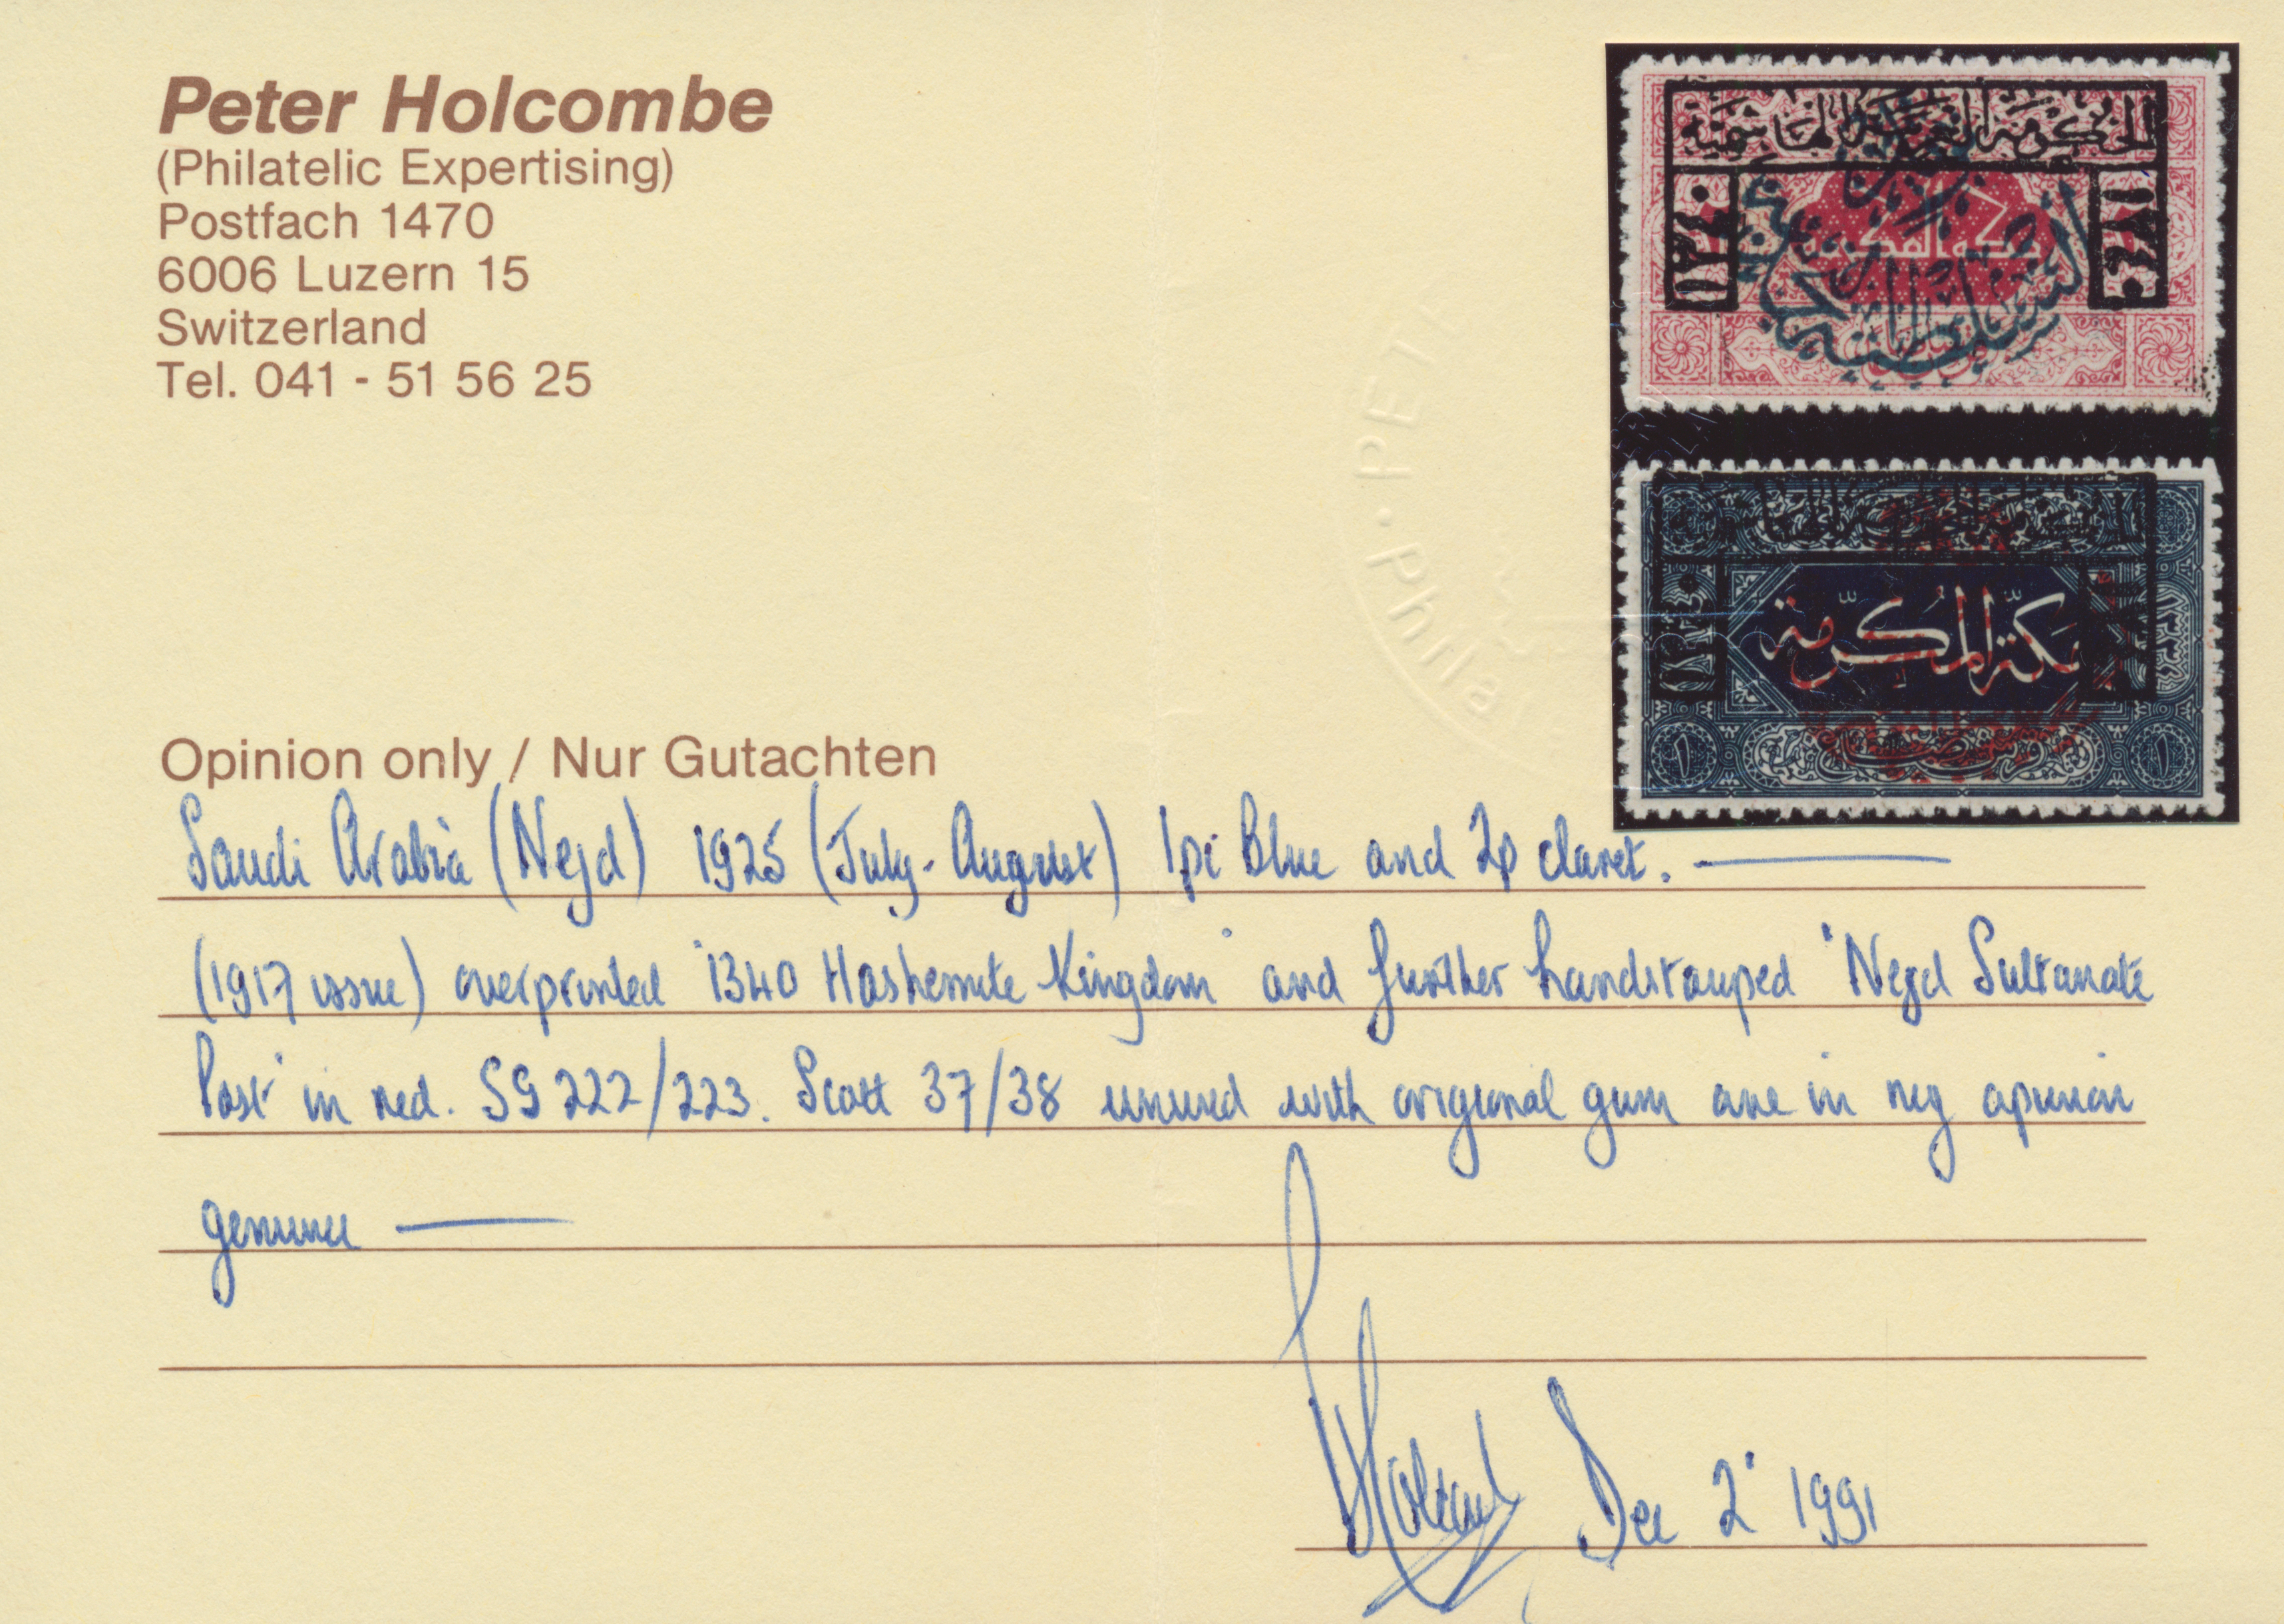 Peter Holcombe
(Philatelic Expertising)
Postfach 1470
6006 Luzern 15
Switzerland
Tel. 041 - 51 56 25
PETE
Phila
الحكومة العربية الهاشمية
١٣٤٠
١٣٤٠
مكة المكرمة
مكة المكرمة
١٣٤٠
١
١
Opinion only / Nur Gutachten
Saudi Arabia (Nejd) 1925 (July-August) 1pi Blue and 2p claret.
(1917 issue) overprinted '1340 Hashemite Kingdom' and further handstamped 'Nejd Sultanate
Post' in red. SG 222/223. Scott 37/38 unused with original gum are in my opinion
genuine
Dec 2 1991